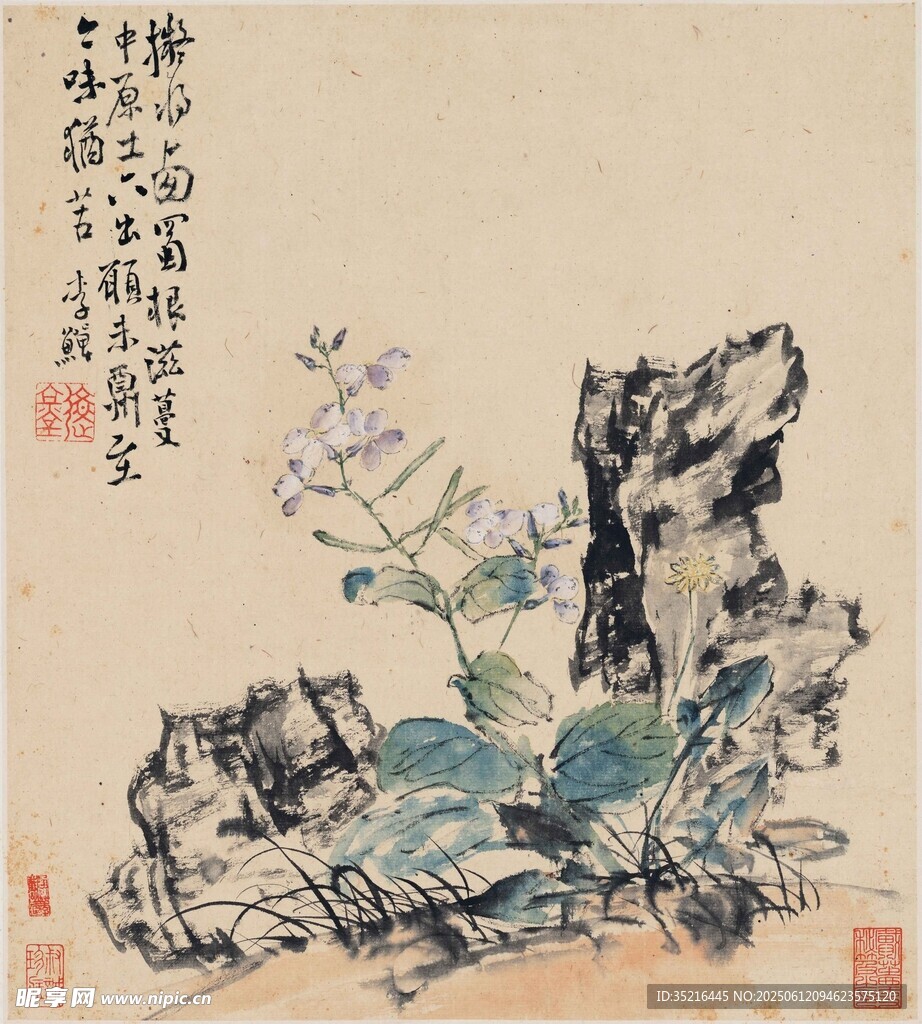 擬將西蜀根滋蔓
中原土六出願未酬至
今味猶苦 李鱓
昵享网 www.nipic.cn
ID:35216445 NO:20250612094623575120